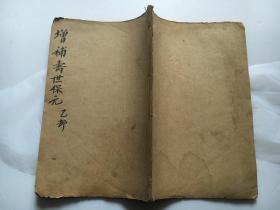 增補壽世保元 乙部